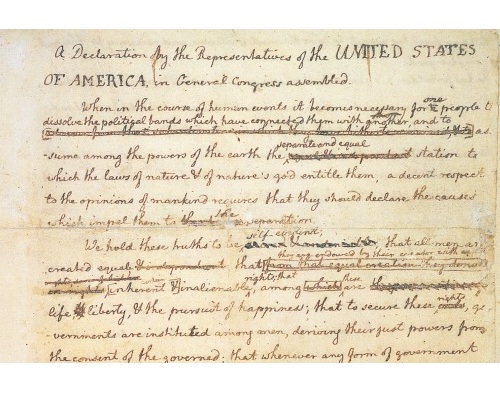 A Declaration by the Representatives of the UNITED STATES
OF AMERICA, in General Congress assembled.
When in the course of human events it becomes necessary for one people t
dissolve the political bands which have connected them with another, and to
as
separate and equal
sume among the powers of the earth the station to
which the laws of nature & of nature's god entitle them, a decent respect
to the opinions of mankind requires that they should declare the causes
which impel them to the separation.
self-evident,
We hold these truths to be, that all men are
created equal that they are endowed by their creator with
from that equal creation they derive
rights; that these
inherent & inalienable, among which are
life & liberty, & the pursuit of happiness; that to secure these rights, go
vernments are instituted among men, deriving their just powers from
the consent of the governed; that whenever any form of government